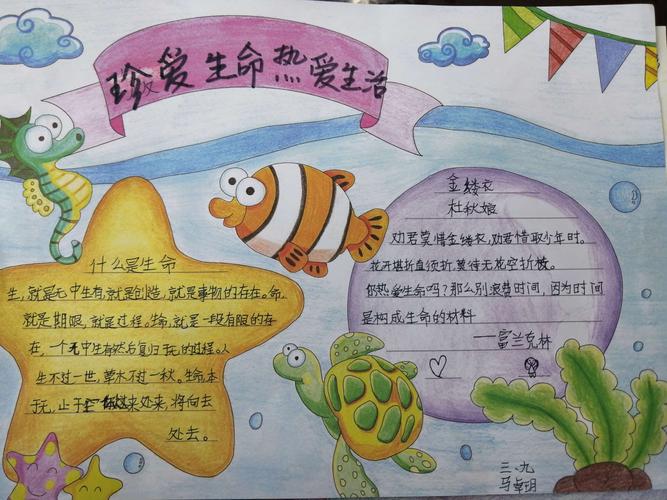 珍爱生命热爱生活
什么是生命
生,就是无中生有,就是创造,就是事物的存在。命,
就是期限,就是过程。生命,就是一段有限的存
在,一个无中生有然后复归于无的过程。人
生不过一世,草木不过一秋。生命本
于无,止于 来处来,将向去
处去。
金缕衣
杜秋娘
劝君莫惜金缕衣,劝君惜取少年时。
花开堪折直须折,莫待无花空折枝。
你热爱生命吗?那么别浪费时间,因为时间
是构成生命的材料
——富兰克林
三.九
马卓玥